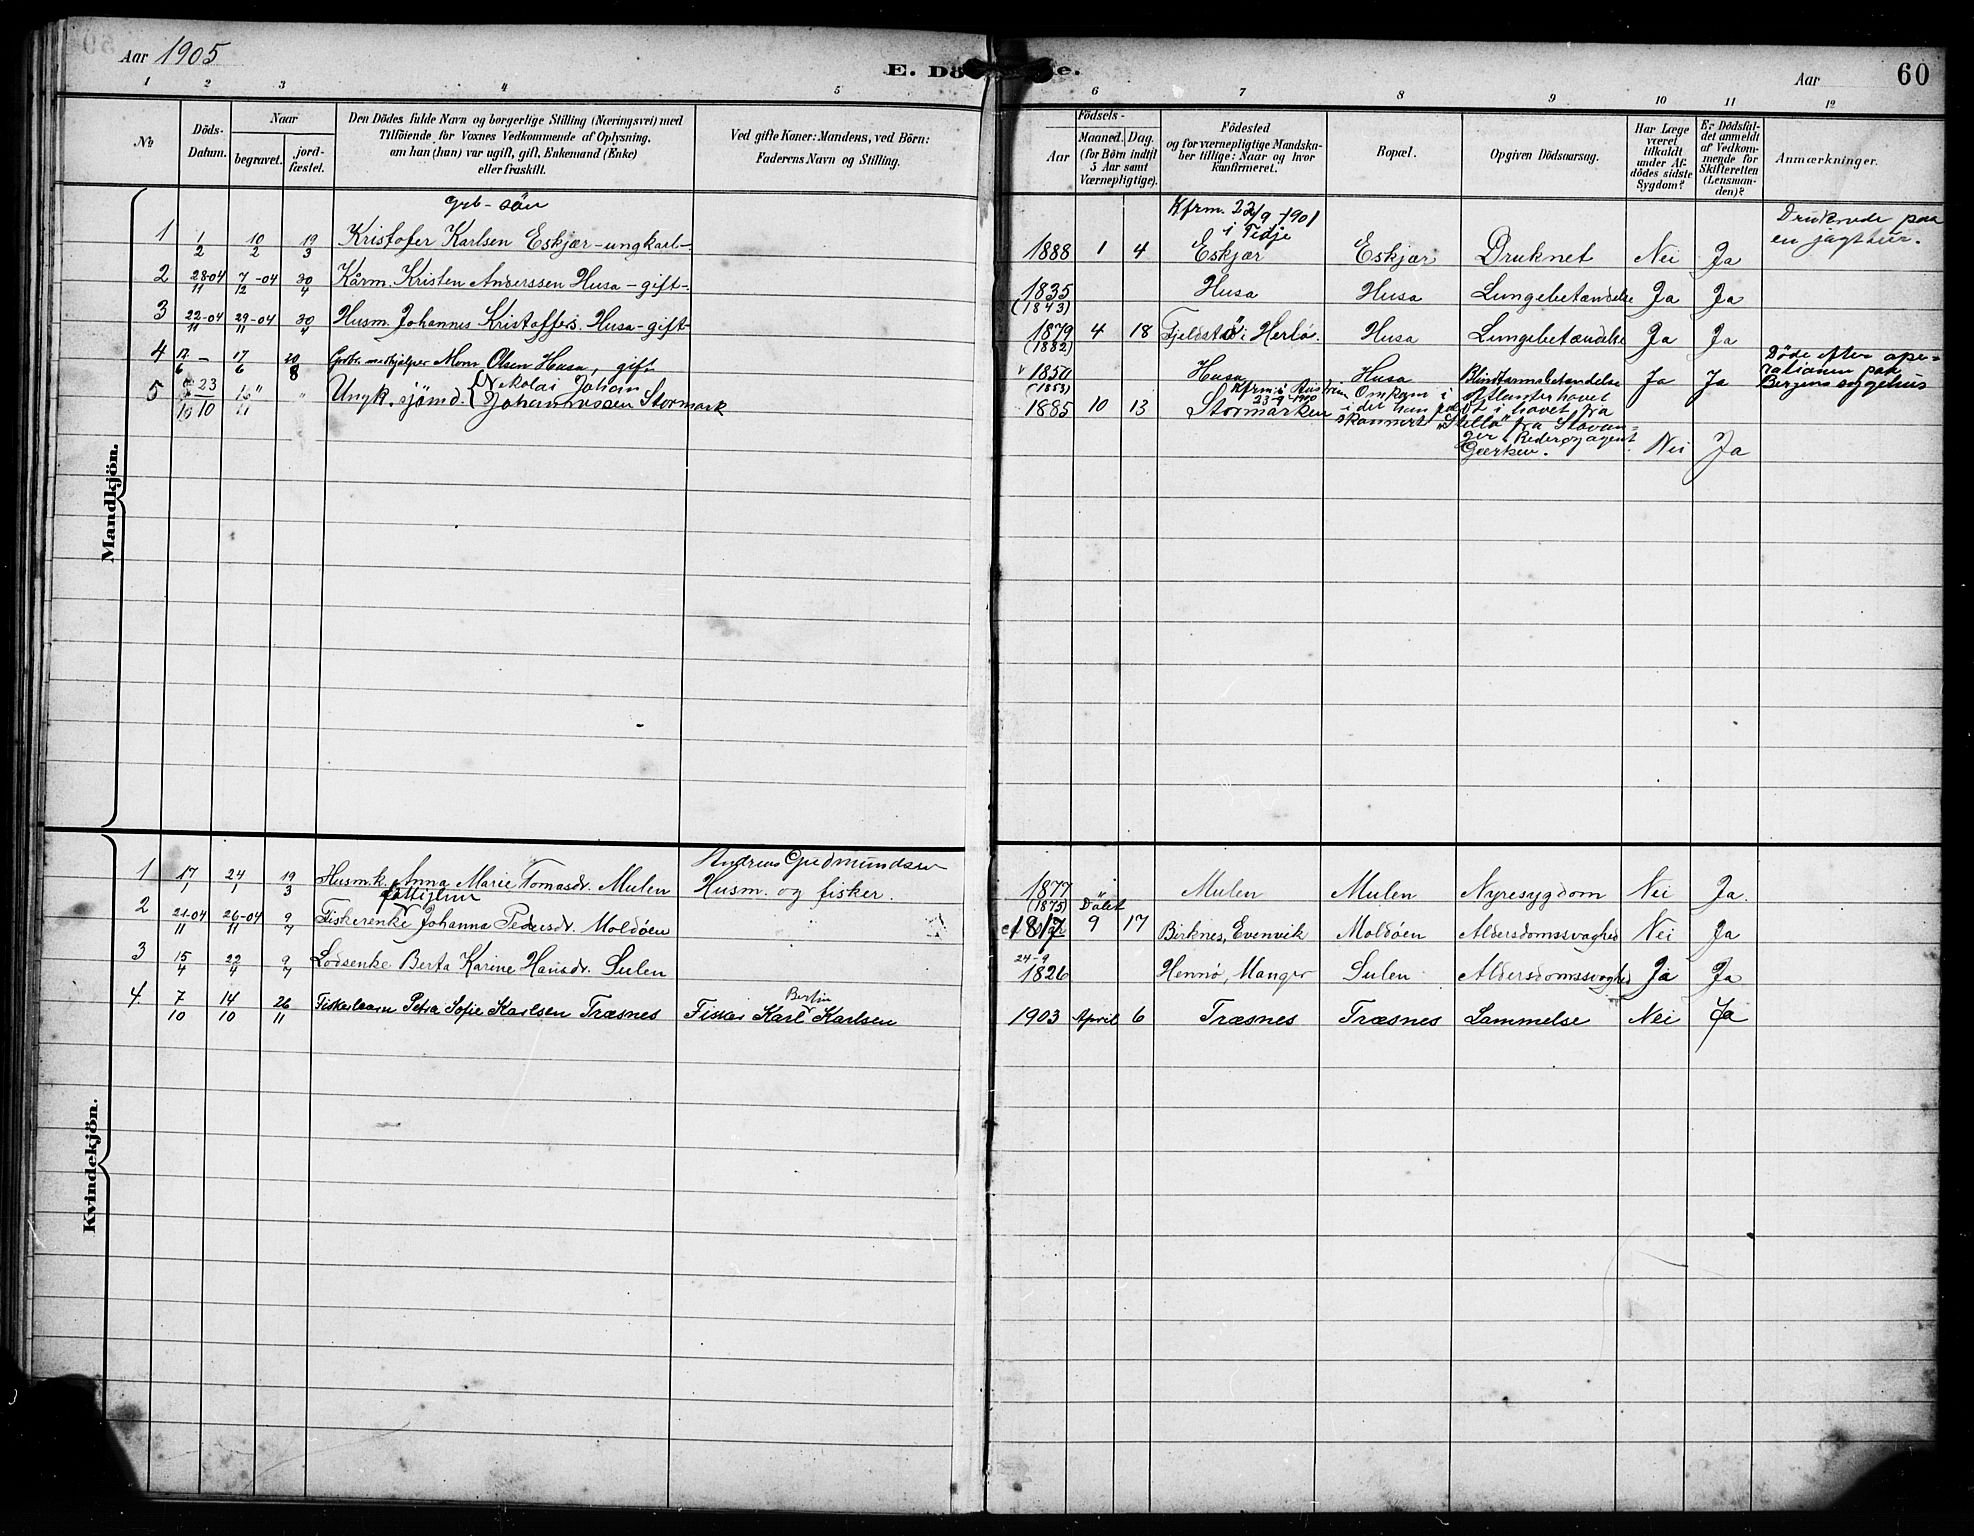 Aar 1905
E. Dö e.
Aar
60
1 2 3 4 5 6 7 8 9 10 11 12
No
Döds-Datum.
Naar
begravet.
jord-fæstet.
Den Dödes fulde Navn og borgerlige Stilling (Næringsvei) med
Tilföiende for Voxnes Vedkommende af Oplysning,
om han (hun) var ugift, gift, Enkemand (Enke)
eller fraskilt.
Ved gifte Koner: Mandens, ved Börn:
Faderens Navn og Stilling.
Födsels-
Aar
Maaned. Dag.
(for Børn indtil
5 Aar samt
Værnepligtige).
Födested
og for værnepligtige Mandska-
ber tillige: Naar og hvor
konfirmeret.
Bopæl.
Opgiven Dödsaarsag.
Har Læge
været
tilkaldt
under Af-
dödes sidste
Sygdom?
Er Dödsfal-
det anmeldt
af Vedkom-
mende for
Skifteretten
(Lensman-
den)?
Anmærkninger.
Mandkjön.
grb-sön
Kfrm. 22/9 1901
i Fedje
Druknede paa
en jagttur.
1 1/2 10/2 19/3 Kristofer Karlsen Eskjær-ungkarl- 1888 1 4 Eskjær Eskjær Druknet Nei Ja
2 28-04/11 7/12-04 30/4 Kårm. Kristen Anderssen Husa-gift-. 1835 (1843) Husa Husa Lungebetændelse Ja Ja
3 22-04/11 29-04/11 30/4 Husm. Johannes Kristoffers. Husa-gift- 1879 (1882) 4 18 Fjeldstø i Herlø. Husa Lungebetændelse Ja Ja
4 17/6 17/6 20/8 Grdbr. medhjelper Mons Olsen Husa, gift 1850 (1853) Husa Husa Blindtarmsbetændelse Ja Ja Døde efter ope-
rationen paa
Bergens sygehus
5 23 10/10 16/11 " Ungk. sjömd. Nikolai Johan
Johannessen Stormark 1885 10 13 Kfrm. i Austrem
23-9-1900
Stormarken Omkom i Atlanterhavet
i det han faldt i havet fra
skonnert "Stella" fra Stavan-
ger. Reder og agent
Gjerken. Nei Ja
Kvindekjön.
1 17/1 24/1 19/3 Husmk. Anna Marie Tomasdr. Mulen Andreas Gudmundsen
Husm. og fisker. 1877 (1875) Mulen Mulen Nyresygdom Nei Ja.
fattiglem
2 21-04/11 26-04/11 9/7 Fiskerenke Johanna Pedersdr. Moldöen 1817 Döbt 9 17 Birknes, Evenvik Moldöen Aldersdomssvaghed Nei Ja
3 15/4 22/4 9/7 Lodsenke Berta Karine Hansdr. Sulen 24-9 1826 Hennö, Manger Sulen Aldersdomssvaghed Ja Ja
4. 7/10 14/10 26/11 Fiskerbarn Petra Sofie Karlsen Træsnes Fisker Karl Bertin Karlsen 1903 April 6 Træsnes Træsnes Lammelse Nei Ja